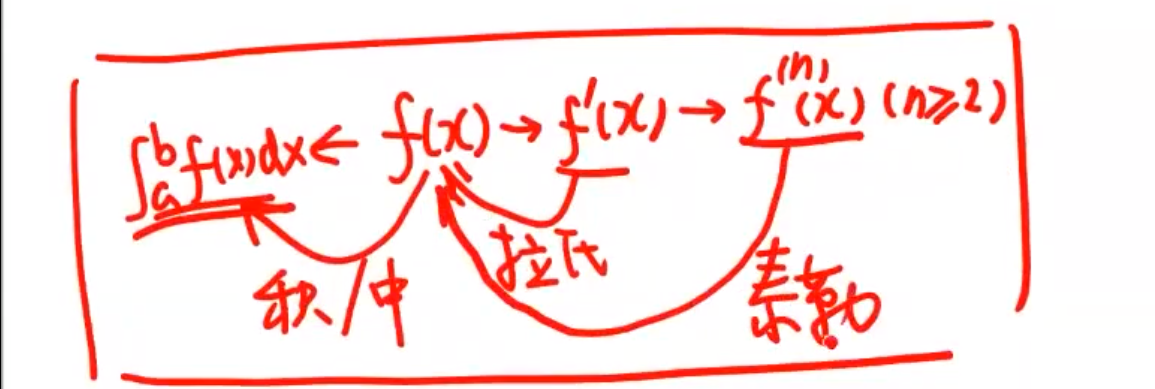 ∫_a^b f(x)dx ← f(x) → f'(x) → f^(n)(x) (n≥2)
积/中 拉氏 泰勒